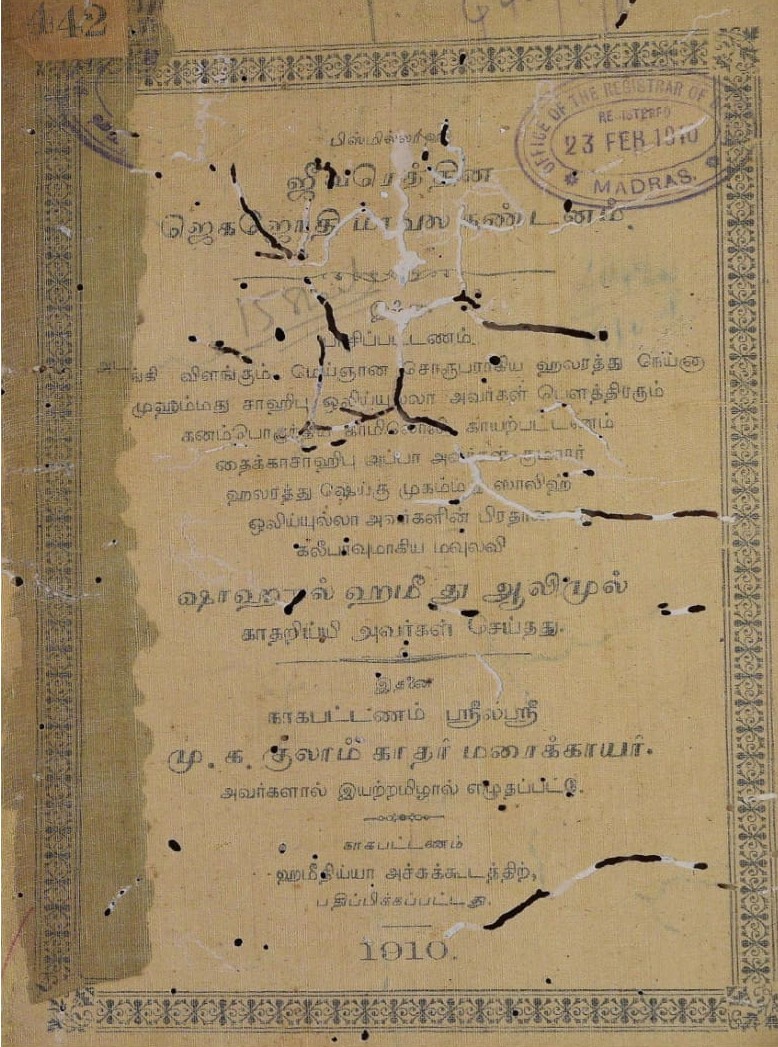 142
OFFICE OF THE REGISTRAR OF
REGISTERED
23 FEB 1910
MADRAS.
பிஸ்மில்லாஹி
ஜீவரெத்தின
ஜெகஜோதி மாவஸ கண்டனம்.
இதனை
பாசிப்பட்டணம்.
அடங்கி விளங்கும் மெய்ஞான சொரூபராகிய ஹலரத்து நெய்னா
முஹம்மது சாஹிபு ஒலிய்யுல்லா அவர்கள் பௌத்திரரும்
கனம்பொருந்திய காமிலொலி காயற்பட்டணம்
தைக்காசாஹிபு அப்பா அவர்கள் குமாரர்
ஹலரத்து ஷெய்கு முகம்மது ஸாலிஹ்
ஒலிய்யுல்லா அவர்களின் பிரதான
கலீபாவுமாகிய மவுலவி
ஷாஹுல் ஹமீது ஆலிமுல்
காதறிய்யி அவர்கள் செய்தது.
இதனை
நாகபட்டணம் ஸ்ரீலஸ்ரீ
மு. க. குலாம் காதர் மரைக்காயர்.
அவர்களால் இயற்றமிழால் எழுதப்பட்டு.
நாகபட்டணம்
ஹமீதிய்யா அச்சுக்கூடத்திற்,
பதிப்பிக்கப்பட்டது.
1910.